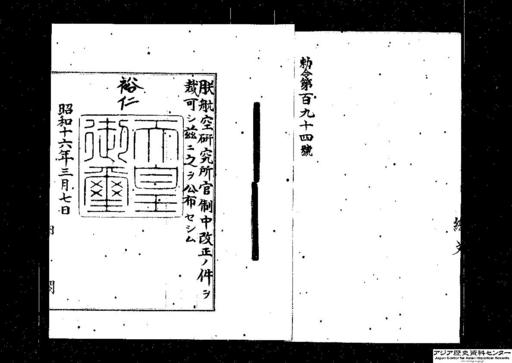 勅令第百九十四號
朕航空研究所官制中改正ノ件ヲ
裁可シ茲ニ之ヲ公布セシム
裕仁
天皇御璽
昭和十六年三月七日
内閣
アジア歴史資料センター
Japan Center for Asian Historical Records